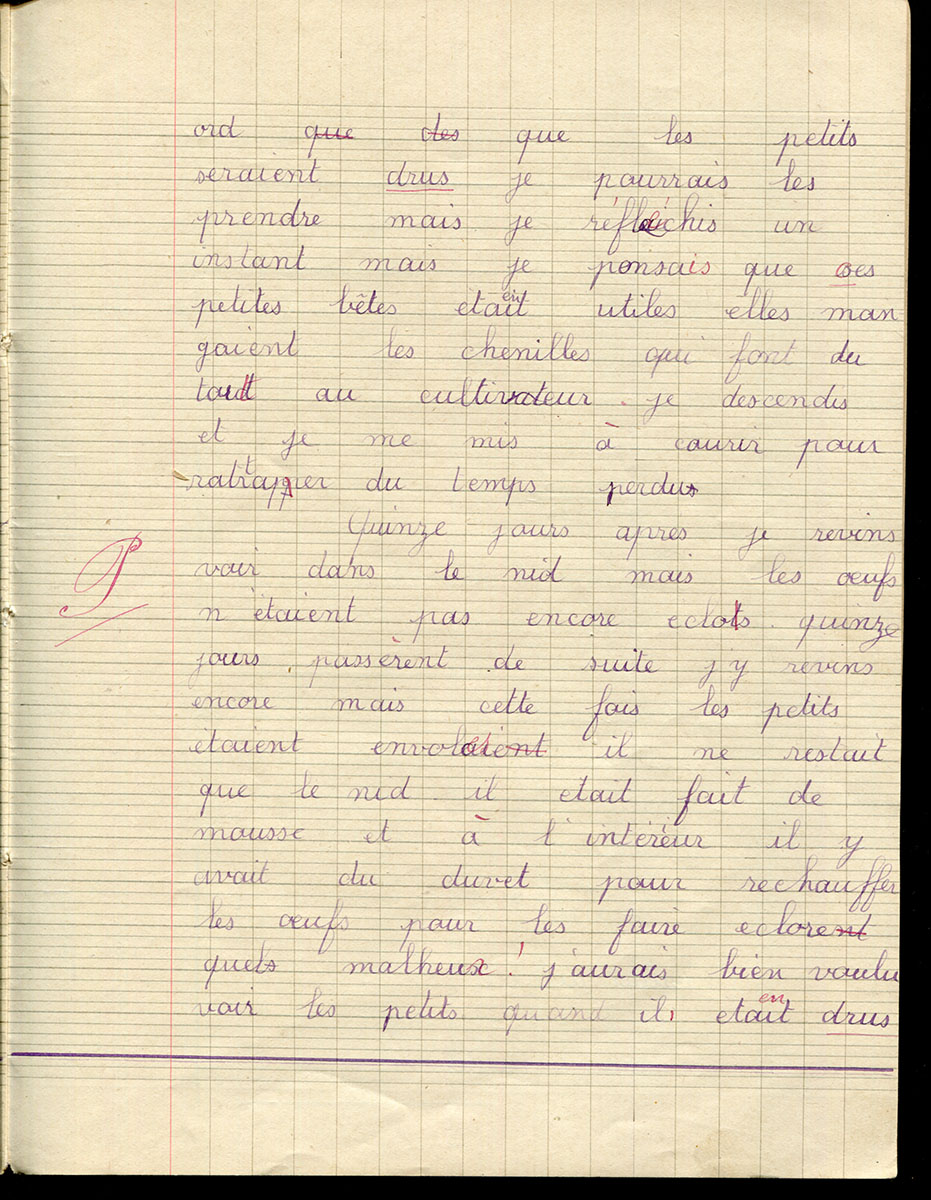 ord que des que les petits
seraient drus je pourrais les
prendre mais je réfléchis un
instant mais je ponsais que ces
petites bêtes etaient utiles elles man
gaient les chenilles qui font du
tort au cultivateur. je descendis
et je me mis à courir pour
rattraper du temps perdu
Quinze jours apres je revins
voir dans le nid mais les œufs
n'étaient pas encore eclots. quinze
jours passèrent de suite j'y revins
encore mais cette fois les petits
étaient envolés il ne restait
que le nid il etait fait de
mousse et à l'intérieur il y
avait du duvet pour rechauffer
les œufs pour les faire eclore
quels malheux! j'aurais bien voulu
voir les petits quand ils etaient drus